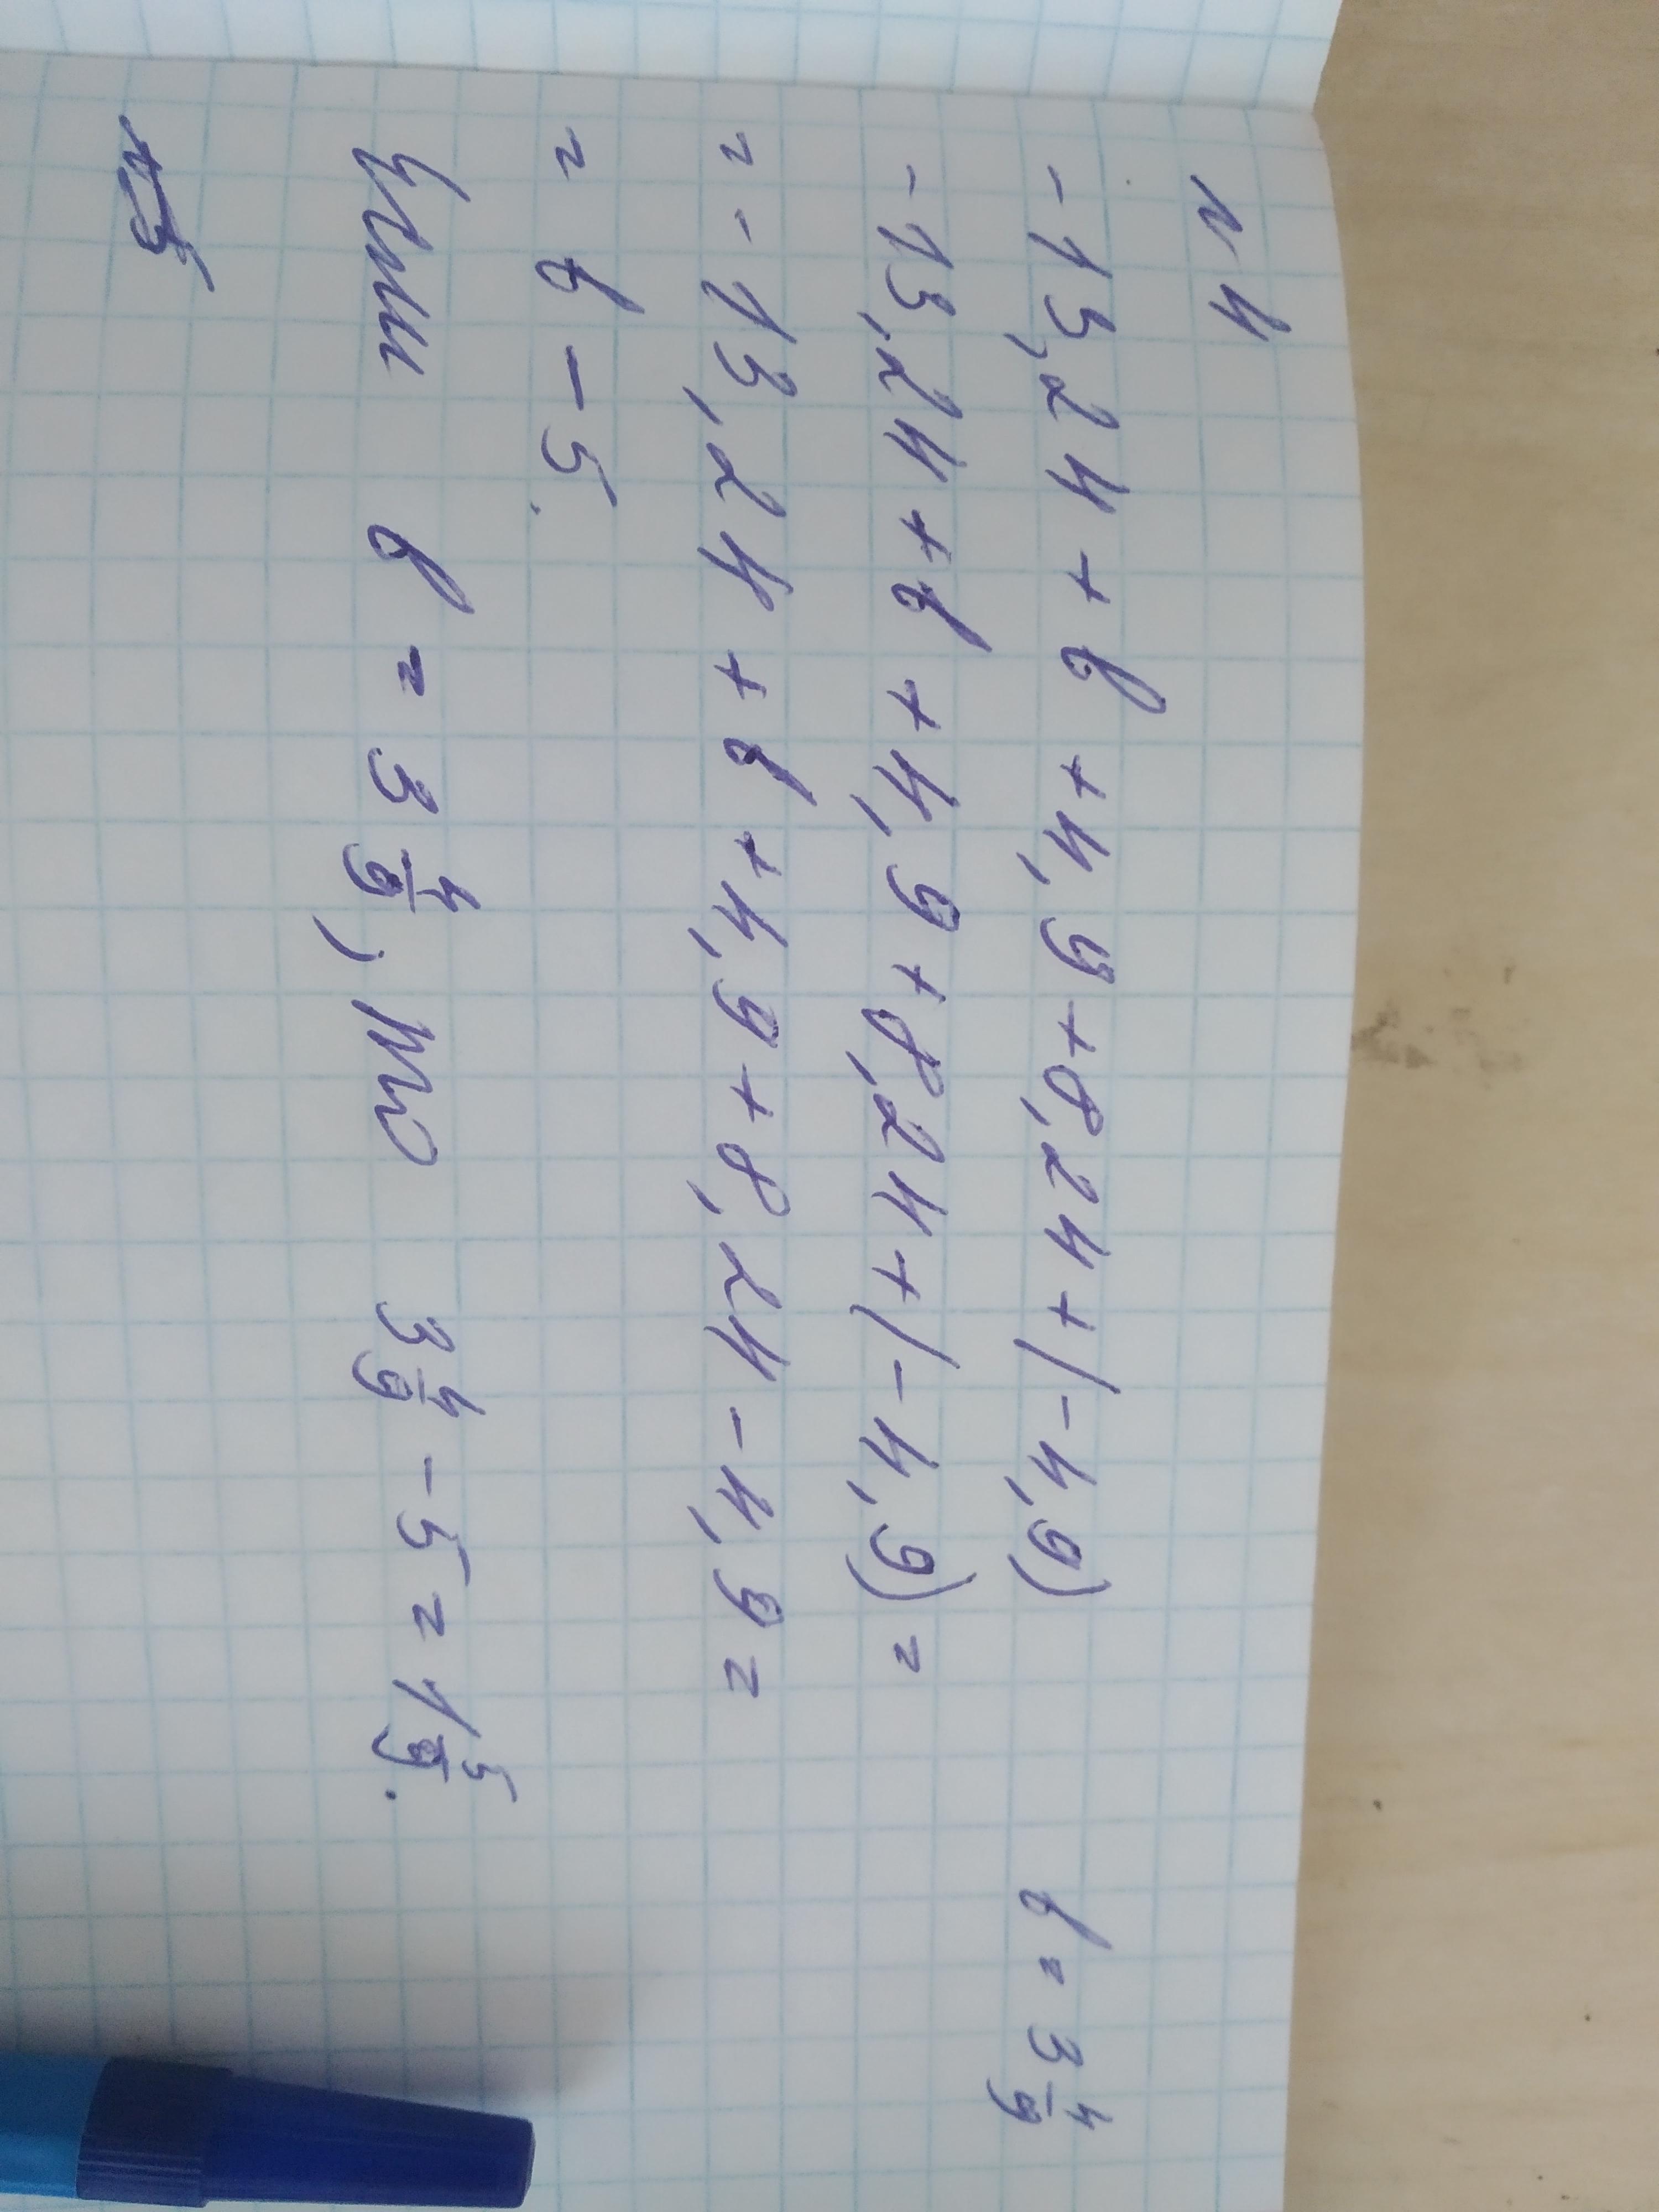 № 4
-13,24 + b + 4,9 + 8,24 + (-4,9) b = 3 4/9
-13,24 + b + 4,9 + 8,24 + (-4,9) =
= -13,24 + b + 4,9 + 8,24 - 4,9 =
= b - 5.
Если b = 3 4/9, то 3 4/9 - 5 = 1 5/9.